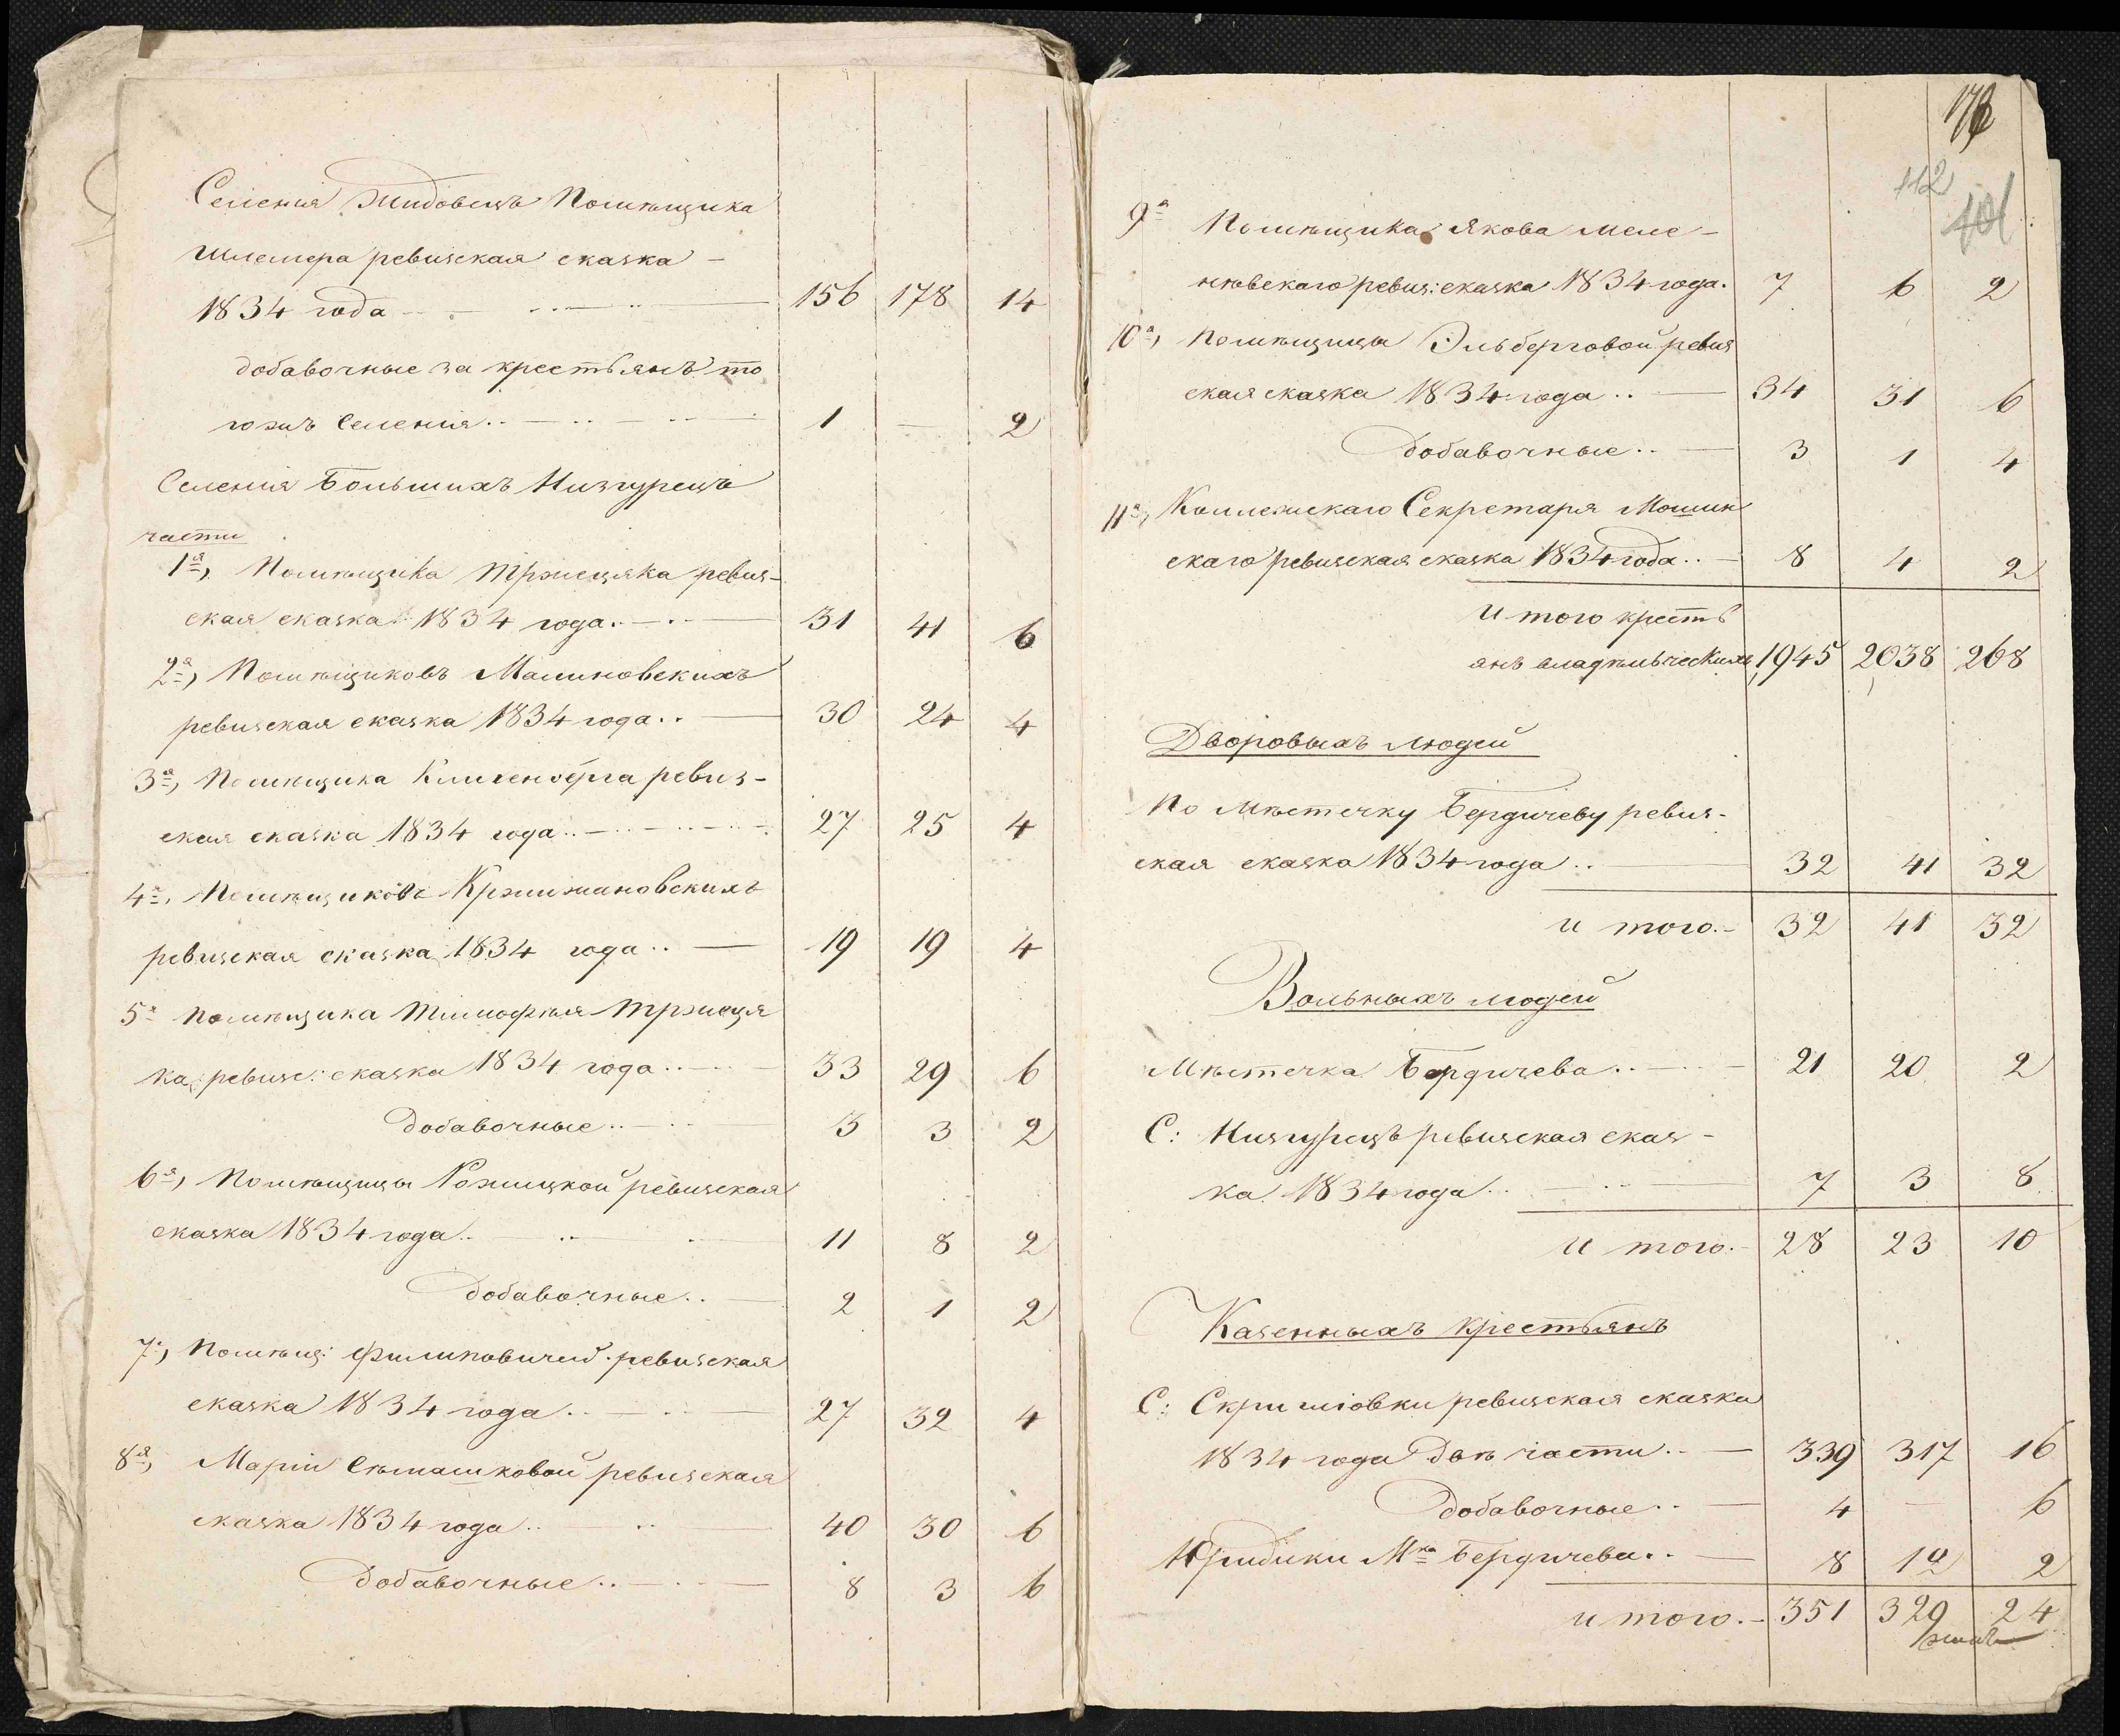 Селенія Жидовецъ Помѣщика
Шлемера ревизская сказка -
1834 года 156 178 14
добавочные за крестьянъ то
гожъ Селенія 1 — 2
Селенія Большихъ Низгурецъ
части
1я, Помѣщика Тржецяка ревиз-
ская сказка 1834 года 31 41 6
2я, Помѣщиковъ Малиновскихъ
ревизская сказка 1834 года 30 24 4
3я, Помѣщика Клигенберга ревиз-
ская сказка 1834 года 27 25 4
4я, Помѣщиковъ Кржижановскихъ
ревизская сказка 1834 года 19 19 4
5я Помѣщика Тимофея Тржеця
ка, ревизс: сказка 1834 года 33 29 6
добавочные 3 3 2
6я, Помѣщицы Рожицкой ревизская
сказка 1834 года 11 8 2
добавочные 2 1 2
7я, Помѣщ: Филиповичей ревизская
сказка 1834 года 27 32 4
8я, Маріи Сѣмашковой ревизская
сказка 1834 года 40 30 6
добавочные 8 3 6
112
401
9я Помѣщика Якова Меле-
нѣвскаго ревиз: сказка 1834 года. 7 6 2
10я, Помѣщицы Эльберговой ревиз
ская сказка 1834 года 34 31 6
добавочные 3 1 4
11я, Коллежскаго Секретаря Мошин
скаго ревизская сказка 1834 года 8 4 2
и того кресть
янъ владѣльческихъ 1945 2038 268
Дворовыхъ людей
По Мѣстечку Бердичеву ревиз-
ская сказка 1834 года 32 41 32
и того 32 41 32
Вольныхъ людей
Мѣстечка Бердичева 21 20 2
С: Низгурецъ ревизская сказ-
ка 1834 года 7 3 8
и того 28 23 10
Казенныхъ крестьянъ
С: Скригловки ревизская сказка
1834 года Двѣ части 339 317 16
добавочные 4 — 6
Юридики Мка Бердичева 8 12 2
и того 351 329 24